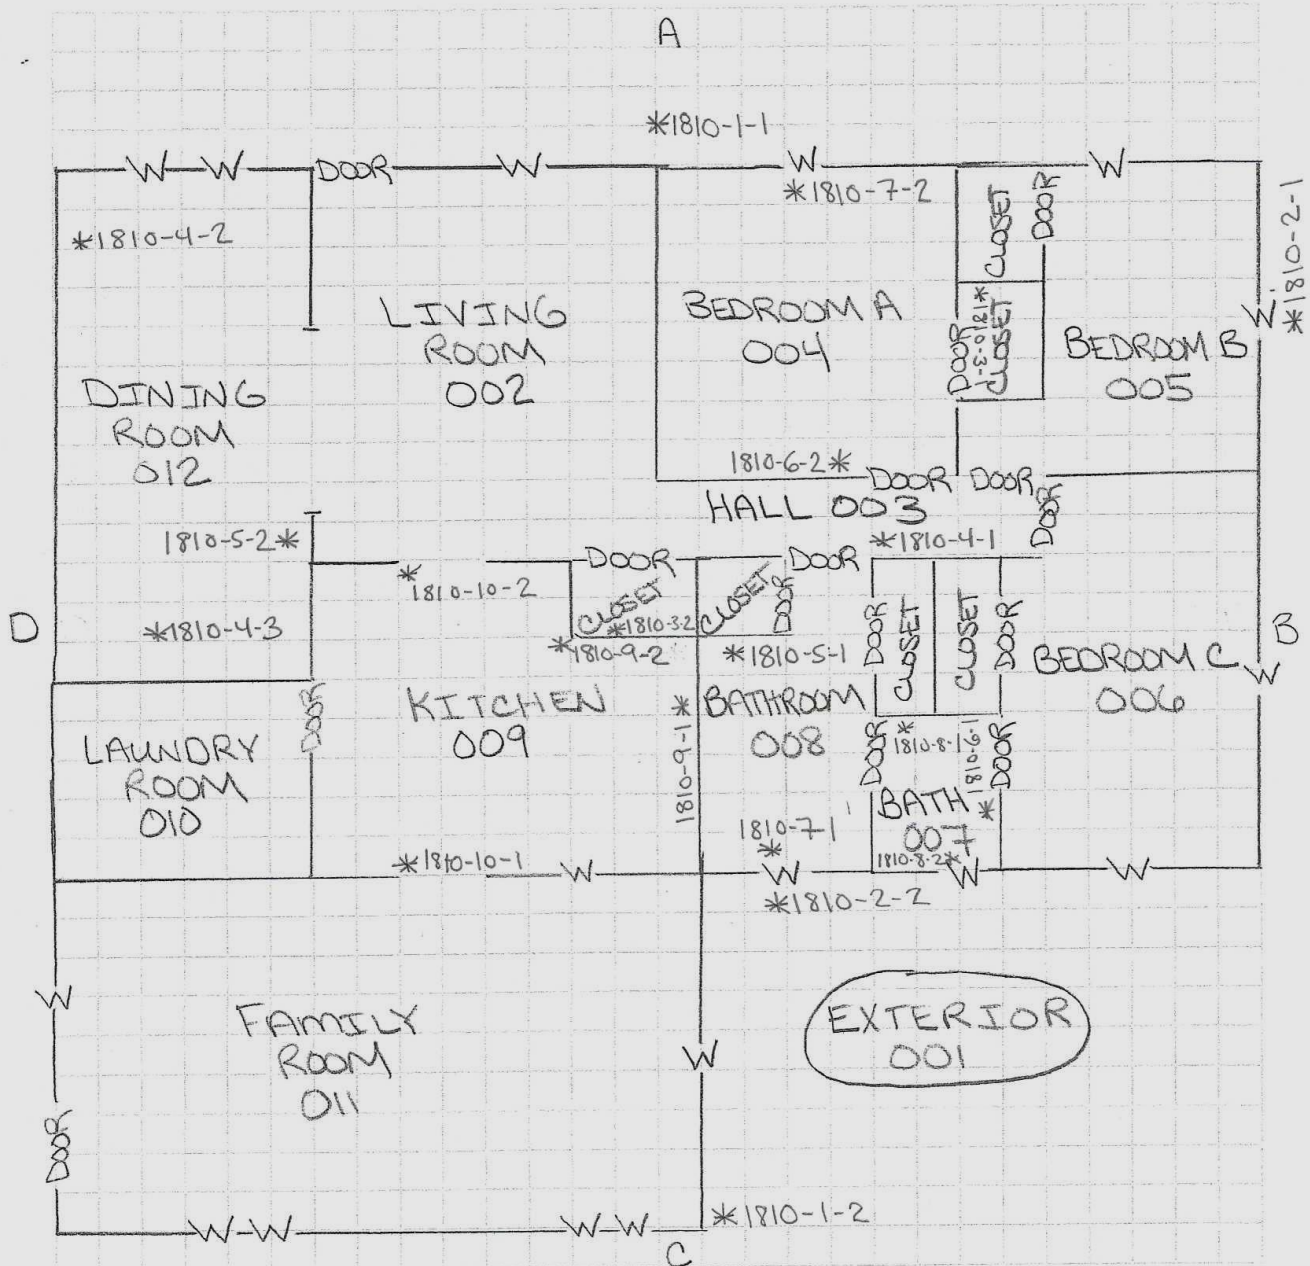 A
*1810-1-1
W W DOOR W W W
*1810-7-2
*1810-4-2
CLOSET
DOOR
*1810-2-1
LIVING
ROOM
002
BEDROOM A
004
DOOR
*1810-3-1
CLOSET
W
BEDROOM B
005
DINING
ROOM
012
1810-6-2*
DOOR DOOR
DOOR
HALL 003
1810-5-2*
*1810-4-1
DOOR DOOR
*1810-10-2
CLOSET
*1810-3-2
CLOSET
DOOR
DOOR
CLOSET
CLOSET
DOOR
D
*1810-4-3
B
*1810-9-2
*1810-5-1
BEDROOM C
006
W
DOOR
KITCHEN
009
*
1810-9-1
BATHROOM
008
DOOR
*
1810-8-1
1810-6-1
*
DOOR
LAUNDRY
ROOM
010
BATH
007
1810-7-1
*
1810-8-2*
*1810-10-1
W W W W
*1810-2-2
W
FAMILY
ROOM
011
W
EXTERIOR
001
DOOR
W W W W
*1810-1-2
C